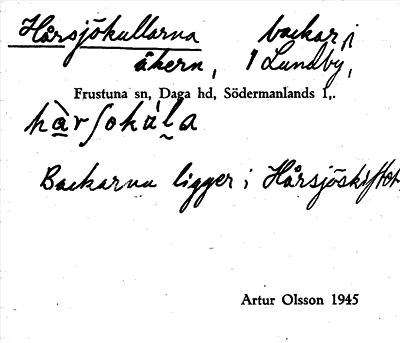 Hårsjökullarna backar i
åkern, 1 Lundby,
Frustuna sn, Daga hd, Södermanlands l,.
hàrſokúla
Backarna ligger i Hårsjöskiftet
Artur Olsson 1945